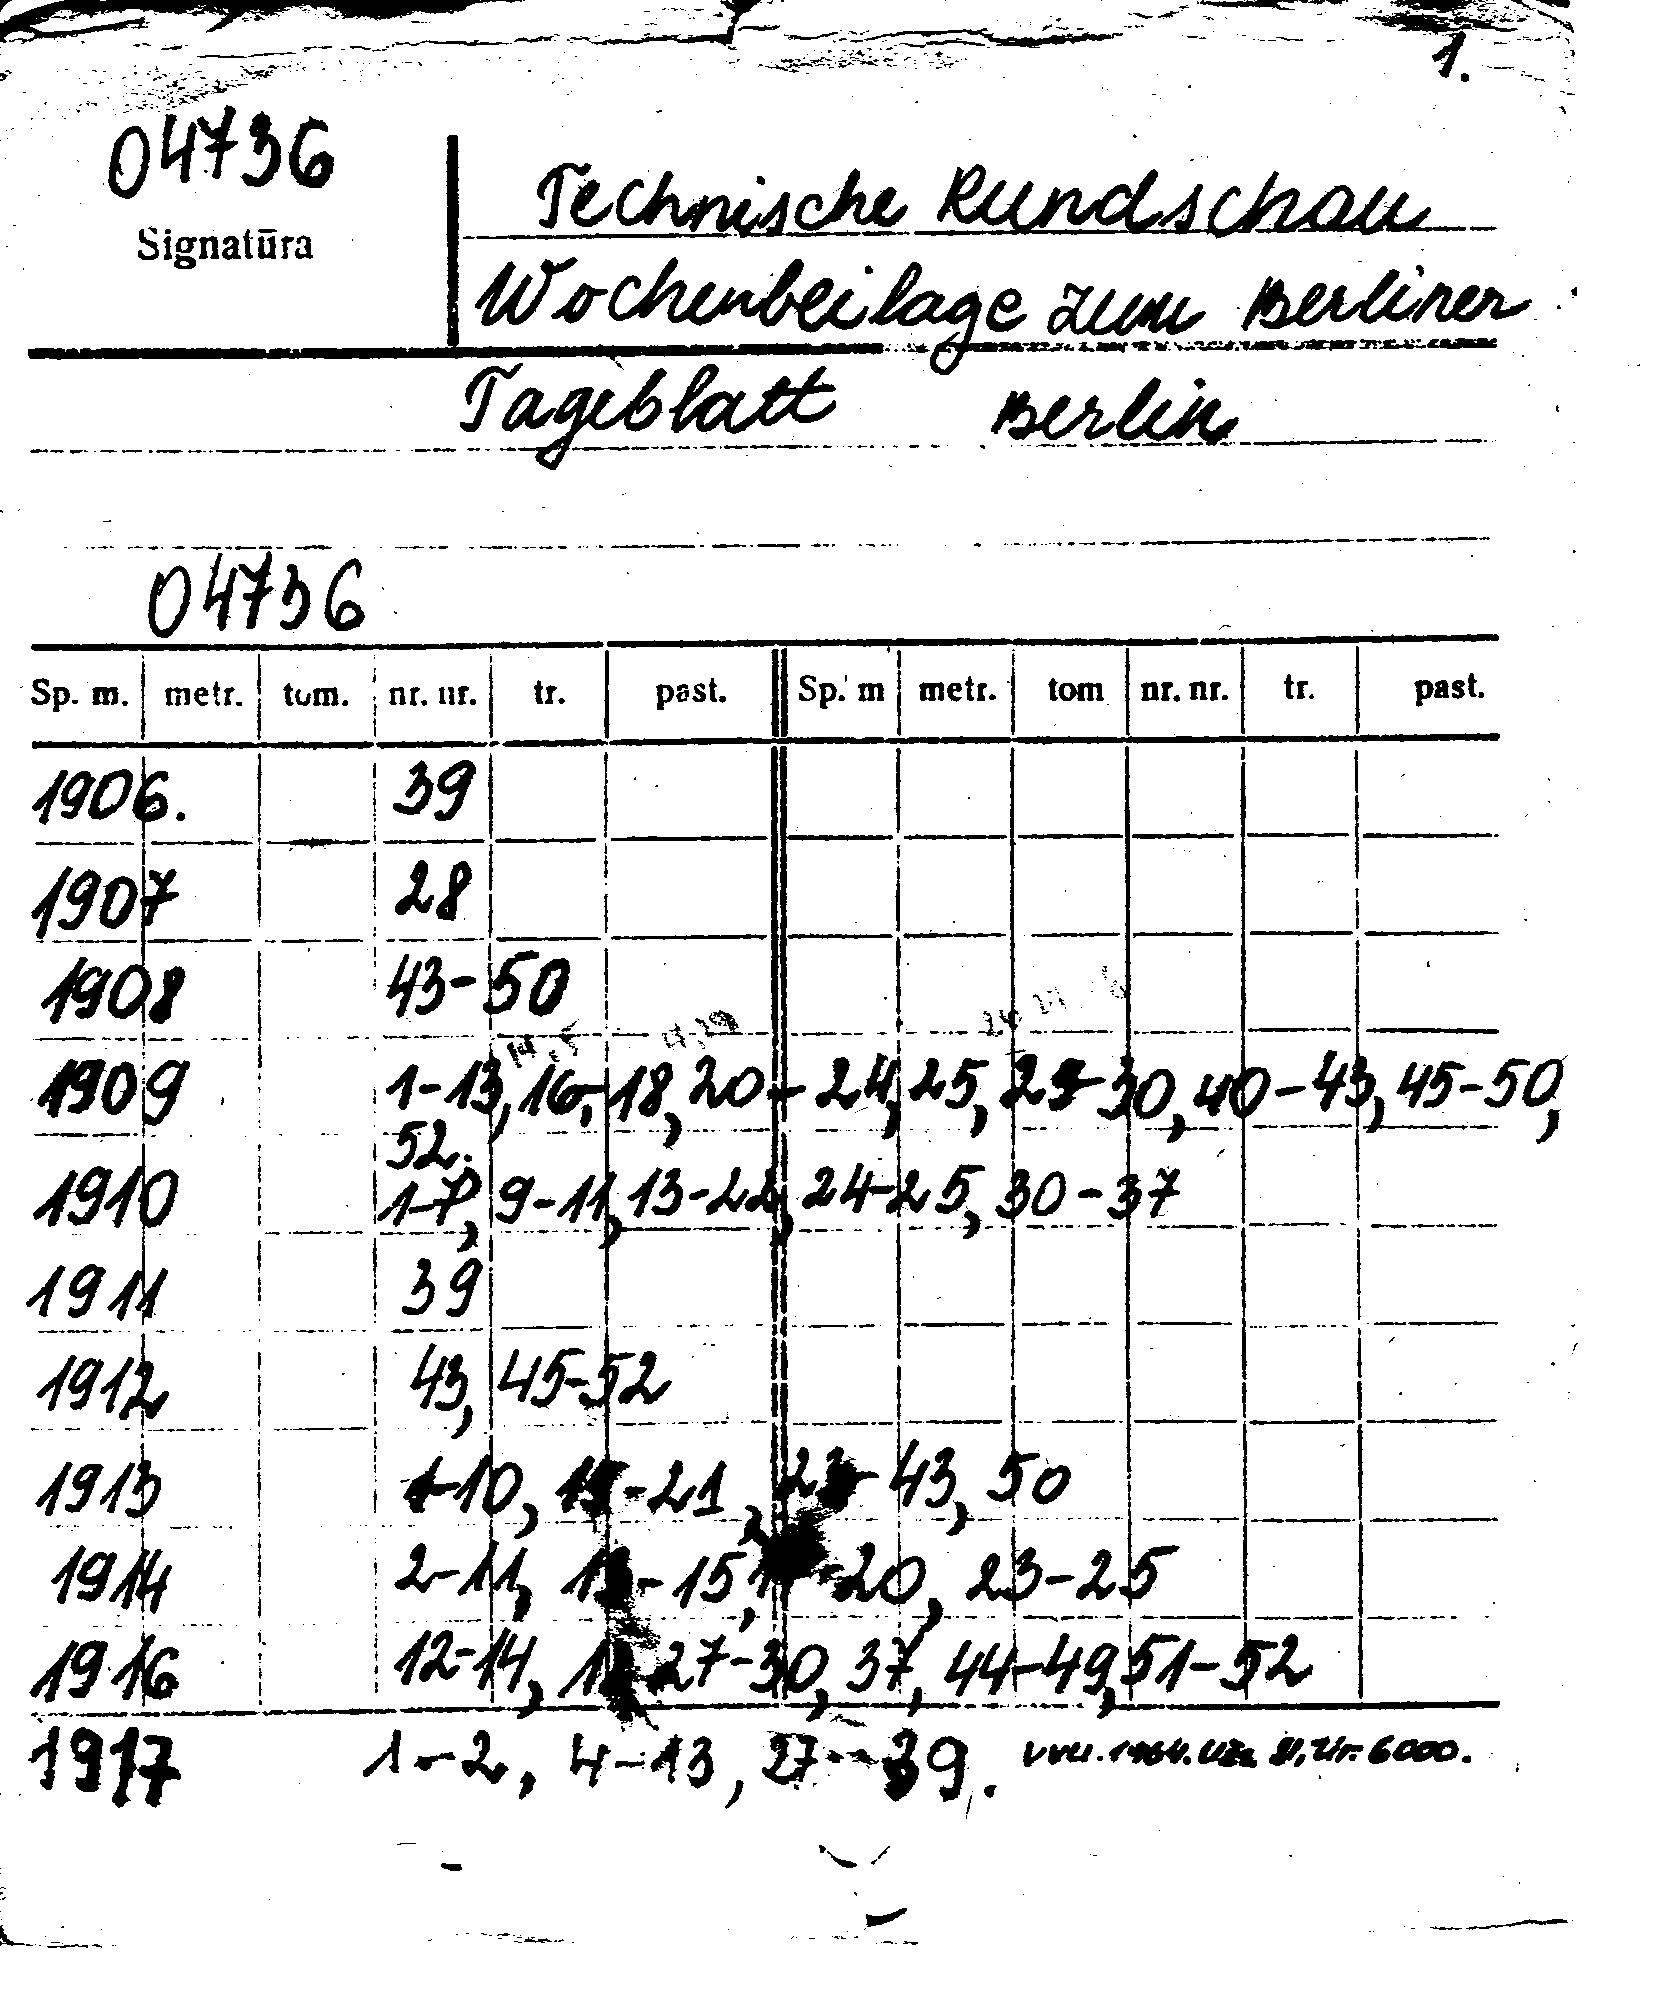 1.
04736
Signatūra
Technische Rundschau
Wochenbeilage zum Berliner
Tageblatt Berlin
04736
Sp. m. metr. tom. nr. nr. tr. past. Sp. m metr. tom nr. nr. tr. past.
1906. 39
1907 28
1908 43-50
1909 1-13, 16,-18, 20-24, 25, 29-30, 40-43, 45-50,
52.
1910 1-7, 9-11, 13-22, 24-25, 30-37
1911 39
1912 43, 45-52
1913 1-10, -21, -43, 50
1914 2-11, -15, -20, 23-25
1916 12-14, 27-30, 37, 44-49, 51-52
1917 1-2, 4-13, 27-39. 6000.